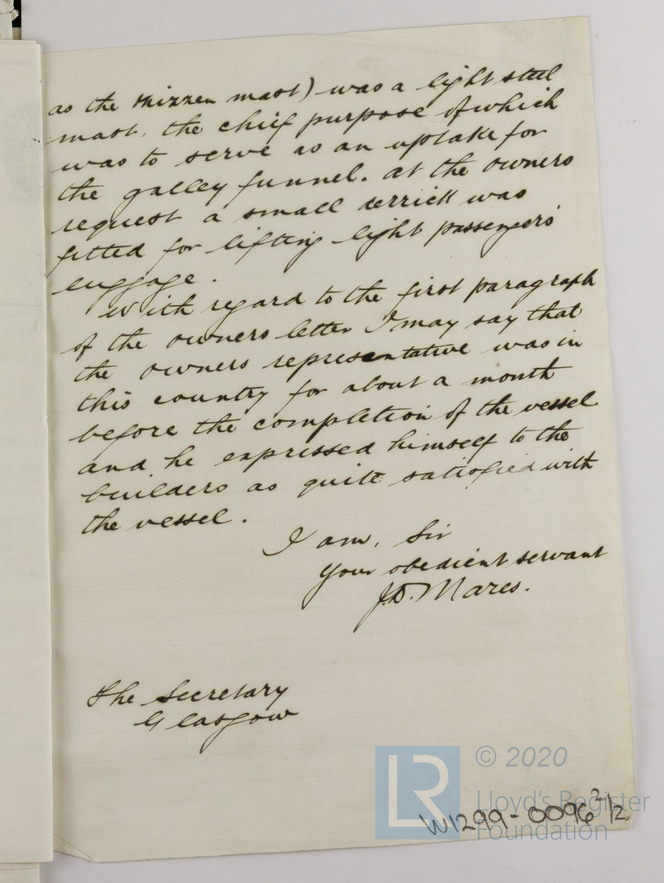 as the mizzen mast) was a light steel
mast, the chief purpose of which
was to serve as an uptake for
the galley funnel. at the owners
request a small derrick was
fitted for lifting light passengers'
luggage.
With regard to the first paragraph
of the owners letter I may say that
the owners representative was in
this country for about a month
before the completion of the vessel
and he expressed himself to the
builders as quite satisfied with
the vessel.
I am, Sir
your obedient servant
J.D. Mares.
The Secretary
Glasgow
LR
© 2020
Lloyd's Register
Foundation
W1299-0096 2/2